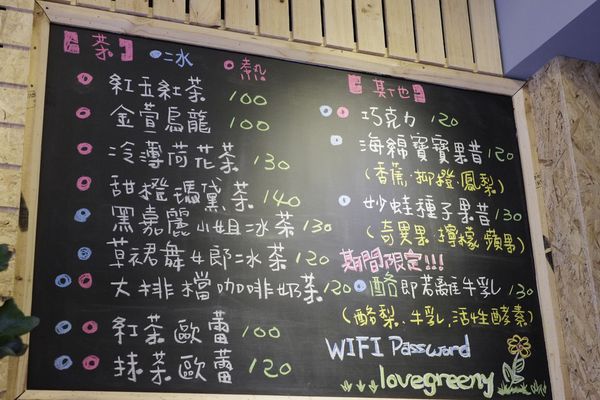 【茶】 冰 熱
紅玉紅茶 100
金萱烏龍 100
冷薄荷花茶 130
甜橙瑪黛茶 140
黑嘉麗小姐冰茶 130
草裙舞女郎冰茶 120
大排檔咖啡奶茶 120
紅茶歐蕾 100
抹茶歐蕾 120
【其他】
巧克力 120
海綿寶寶果昔 120
(香蕉.柳橙.鳳梨)
妙蛙種子果昔 130
(奇異果.檸檬.蘋果)
期間限定!!!
酪即若離牛乳 130
(酪梨.牛乳.活性酵素)
WIFI Password
lovegreeny